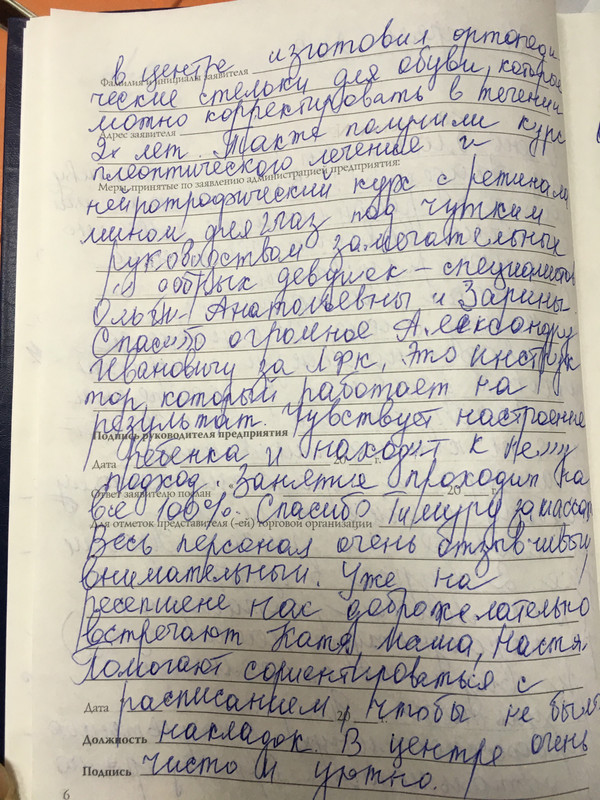 в центре изготовил ортопеди
Фамилия и инициалы заявителя
ческие стельки для обуви, которые
можно корректировать в течении
Адрес заявителя
2х лет. Также получили курс
плеоптического лечение и
Меры, принятые по заявлению администрацией предприятия:
нейротрофический курс с ретинала
мином для глаз под чутким
руководством замечательных
и добрых девушек – специалистов
Ольги Анатольевны и Зарины.
Спасибо огромное Александру
Ивановичу за ЛФК. Это инструк
тор, который работает на
результат. Чувствует настроение
Подпись руководителя предприятия
ребенка и находит к нему
Дата 20 г.
подход. Занятие проходит на
Ответ заявителю послан 20 г.
все 100%. Спасибо Тимуру за массаж
Для отметок представителя (-ей) торговой организации
Весь персонал очень отзывчивый
внимательный. Уже на
ресепшене нас доброжелательно
встречают Катя, Маша, Настя.
Помогают сориентироваться с
расписанием, чтобы не было
Дата 20
Должность накладок. В центре очень
Подпись чисто и уютно.
6